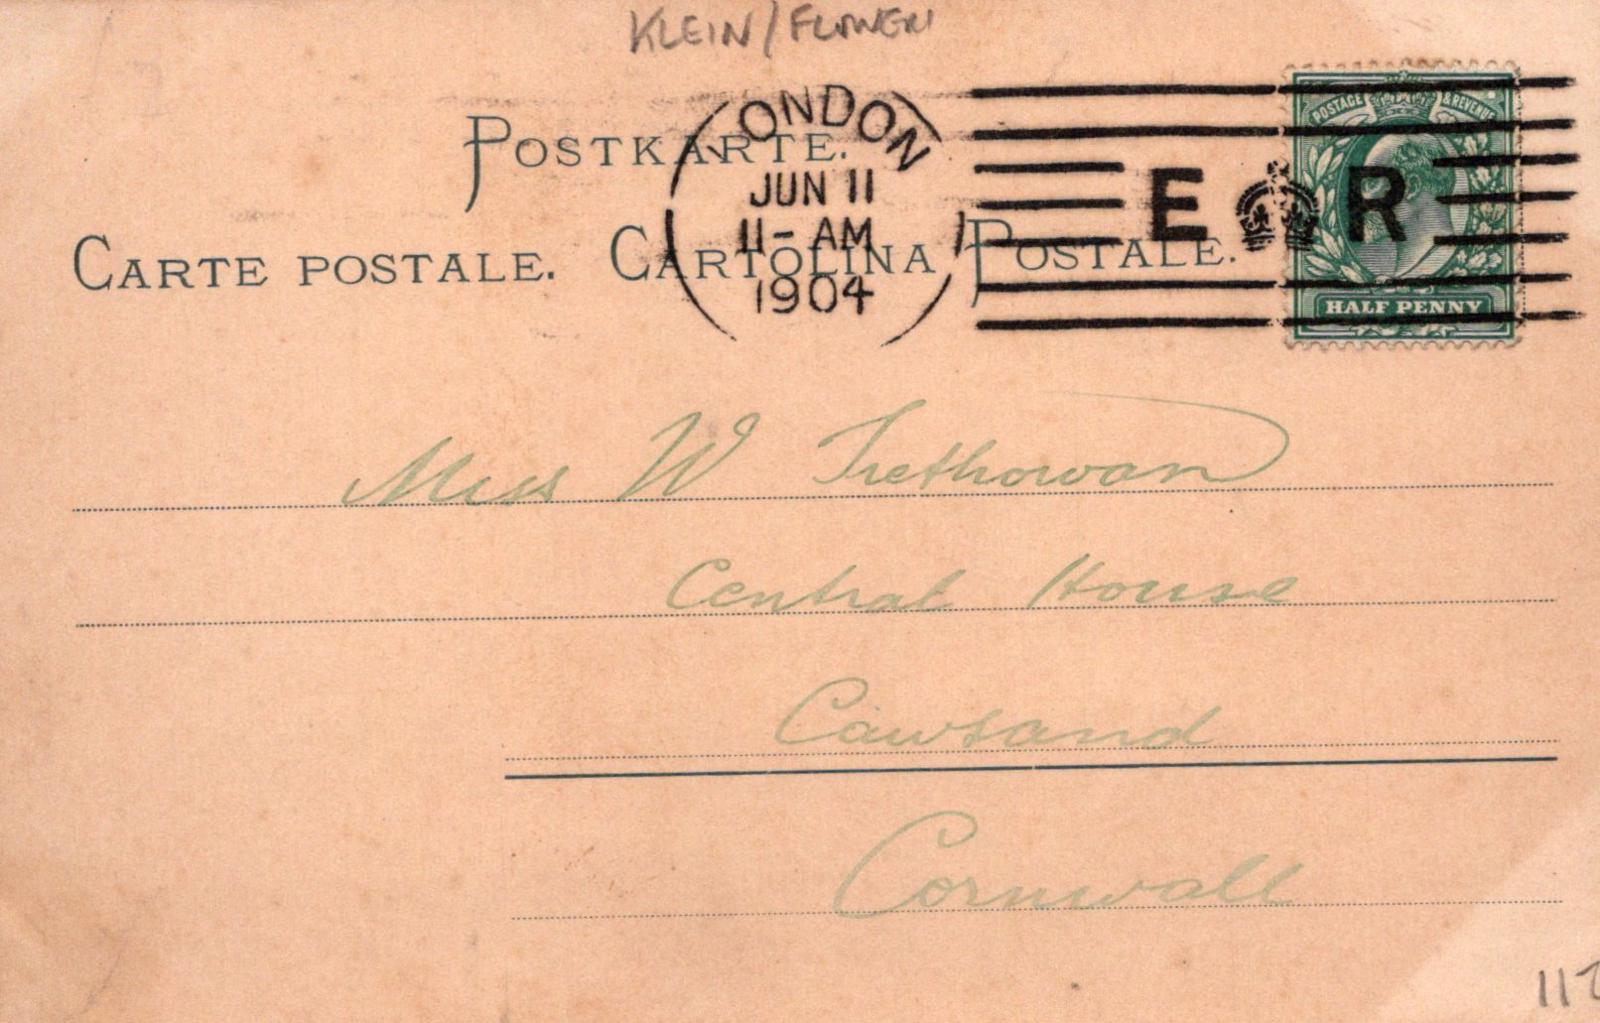 KLEIN/FLOWER
POSTKARTE.
CARTE POSTALE. CARTOLINA POSTALE.
LONDON
JUN 11
11-AM
1904
E R
POSTAGE & REVENUE
HALF PENNY
Miss W Trethowan
Central House
Cawsand
Cornwall